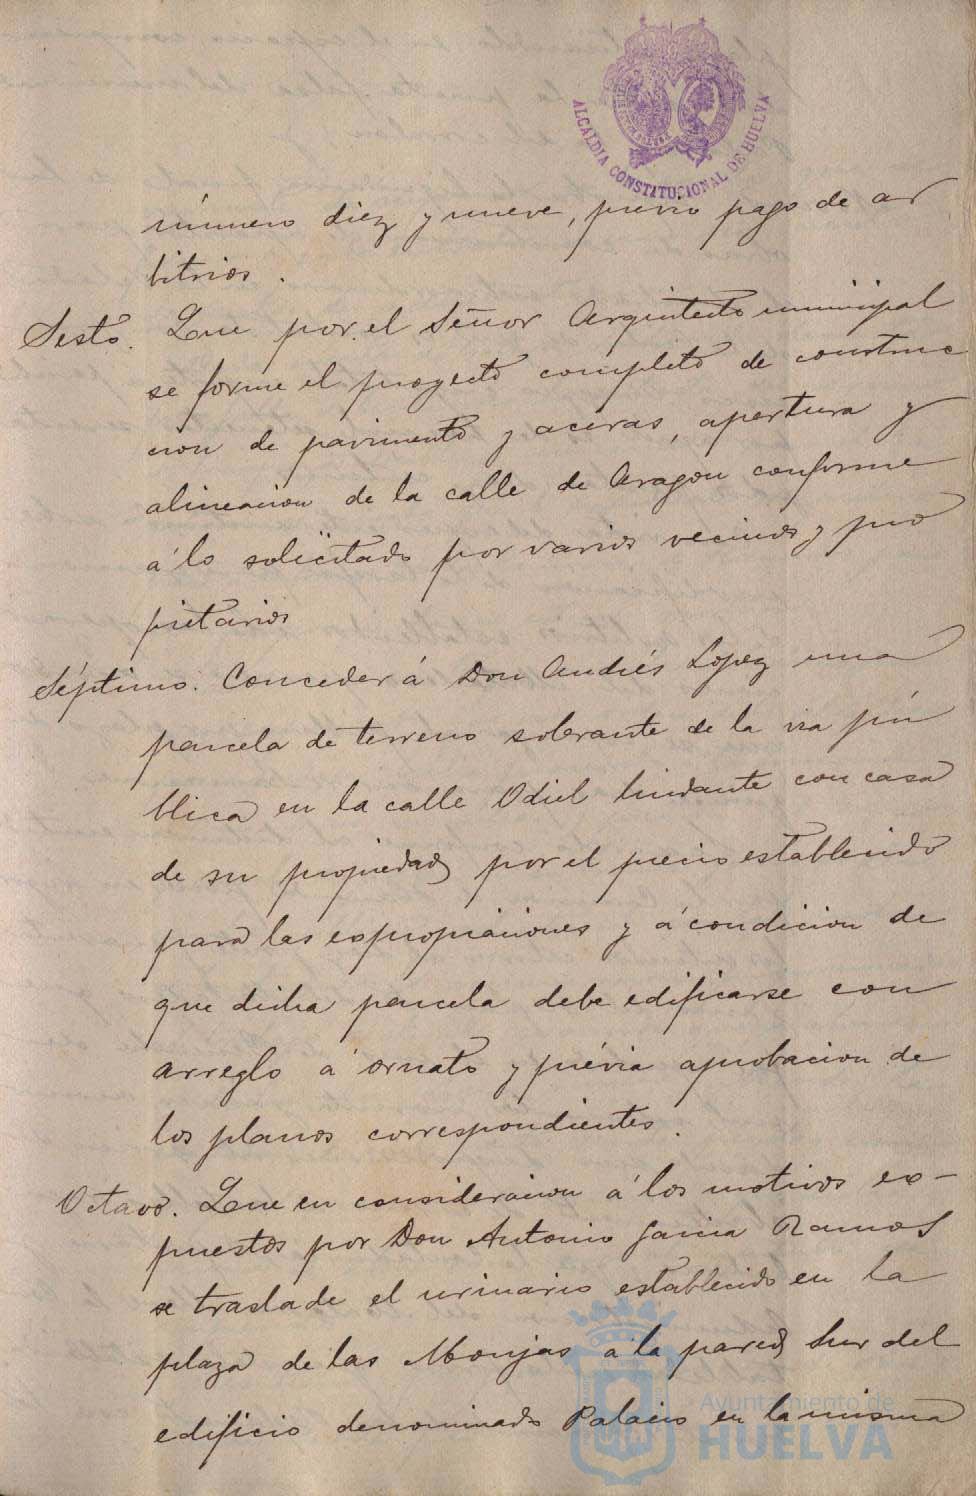 ALCALDIA CONSTITUCIONAL DE HUELVA
número diez y nueve, previo pago de ar
bitrios.
Sesto. Que por el Señor Arquitecto municipal
se forme el proyecto completo de construc
cion de pavimento y aceras, apertura y
alineacion de la calle de Aragon conforme
á lo solicitado por varios vecinos y pro
pietarios
Séptimo. Conceder á Don Andrés Lopez una
parcela de terreno sobrante de la via pú
blica en la calle Odiel lindante con casa
de su propiedad por el precio establecido
para las expropiaciones y á condicion de
que dicha parcela debe edificarse con
arreglo á ornato y prévia aprobacion de
los planos correspondientes.
Octavo. Que en consideracion á los motivos ex-
puestos por Don Antonio Garcia Ramos
se traslade el urinario establecido en la
plaza de las Monjas á la pared Sur del
edificio denominado Palacio en la misma
Ayuntamiento de
HUELVA